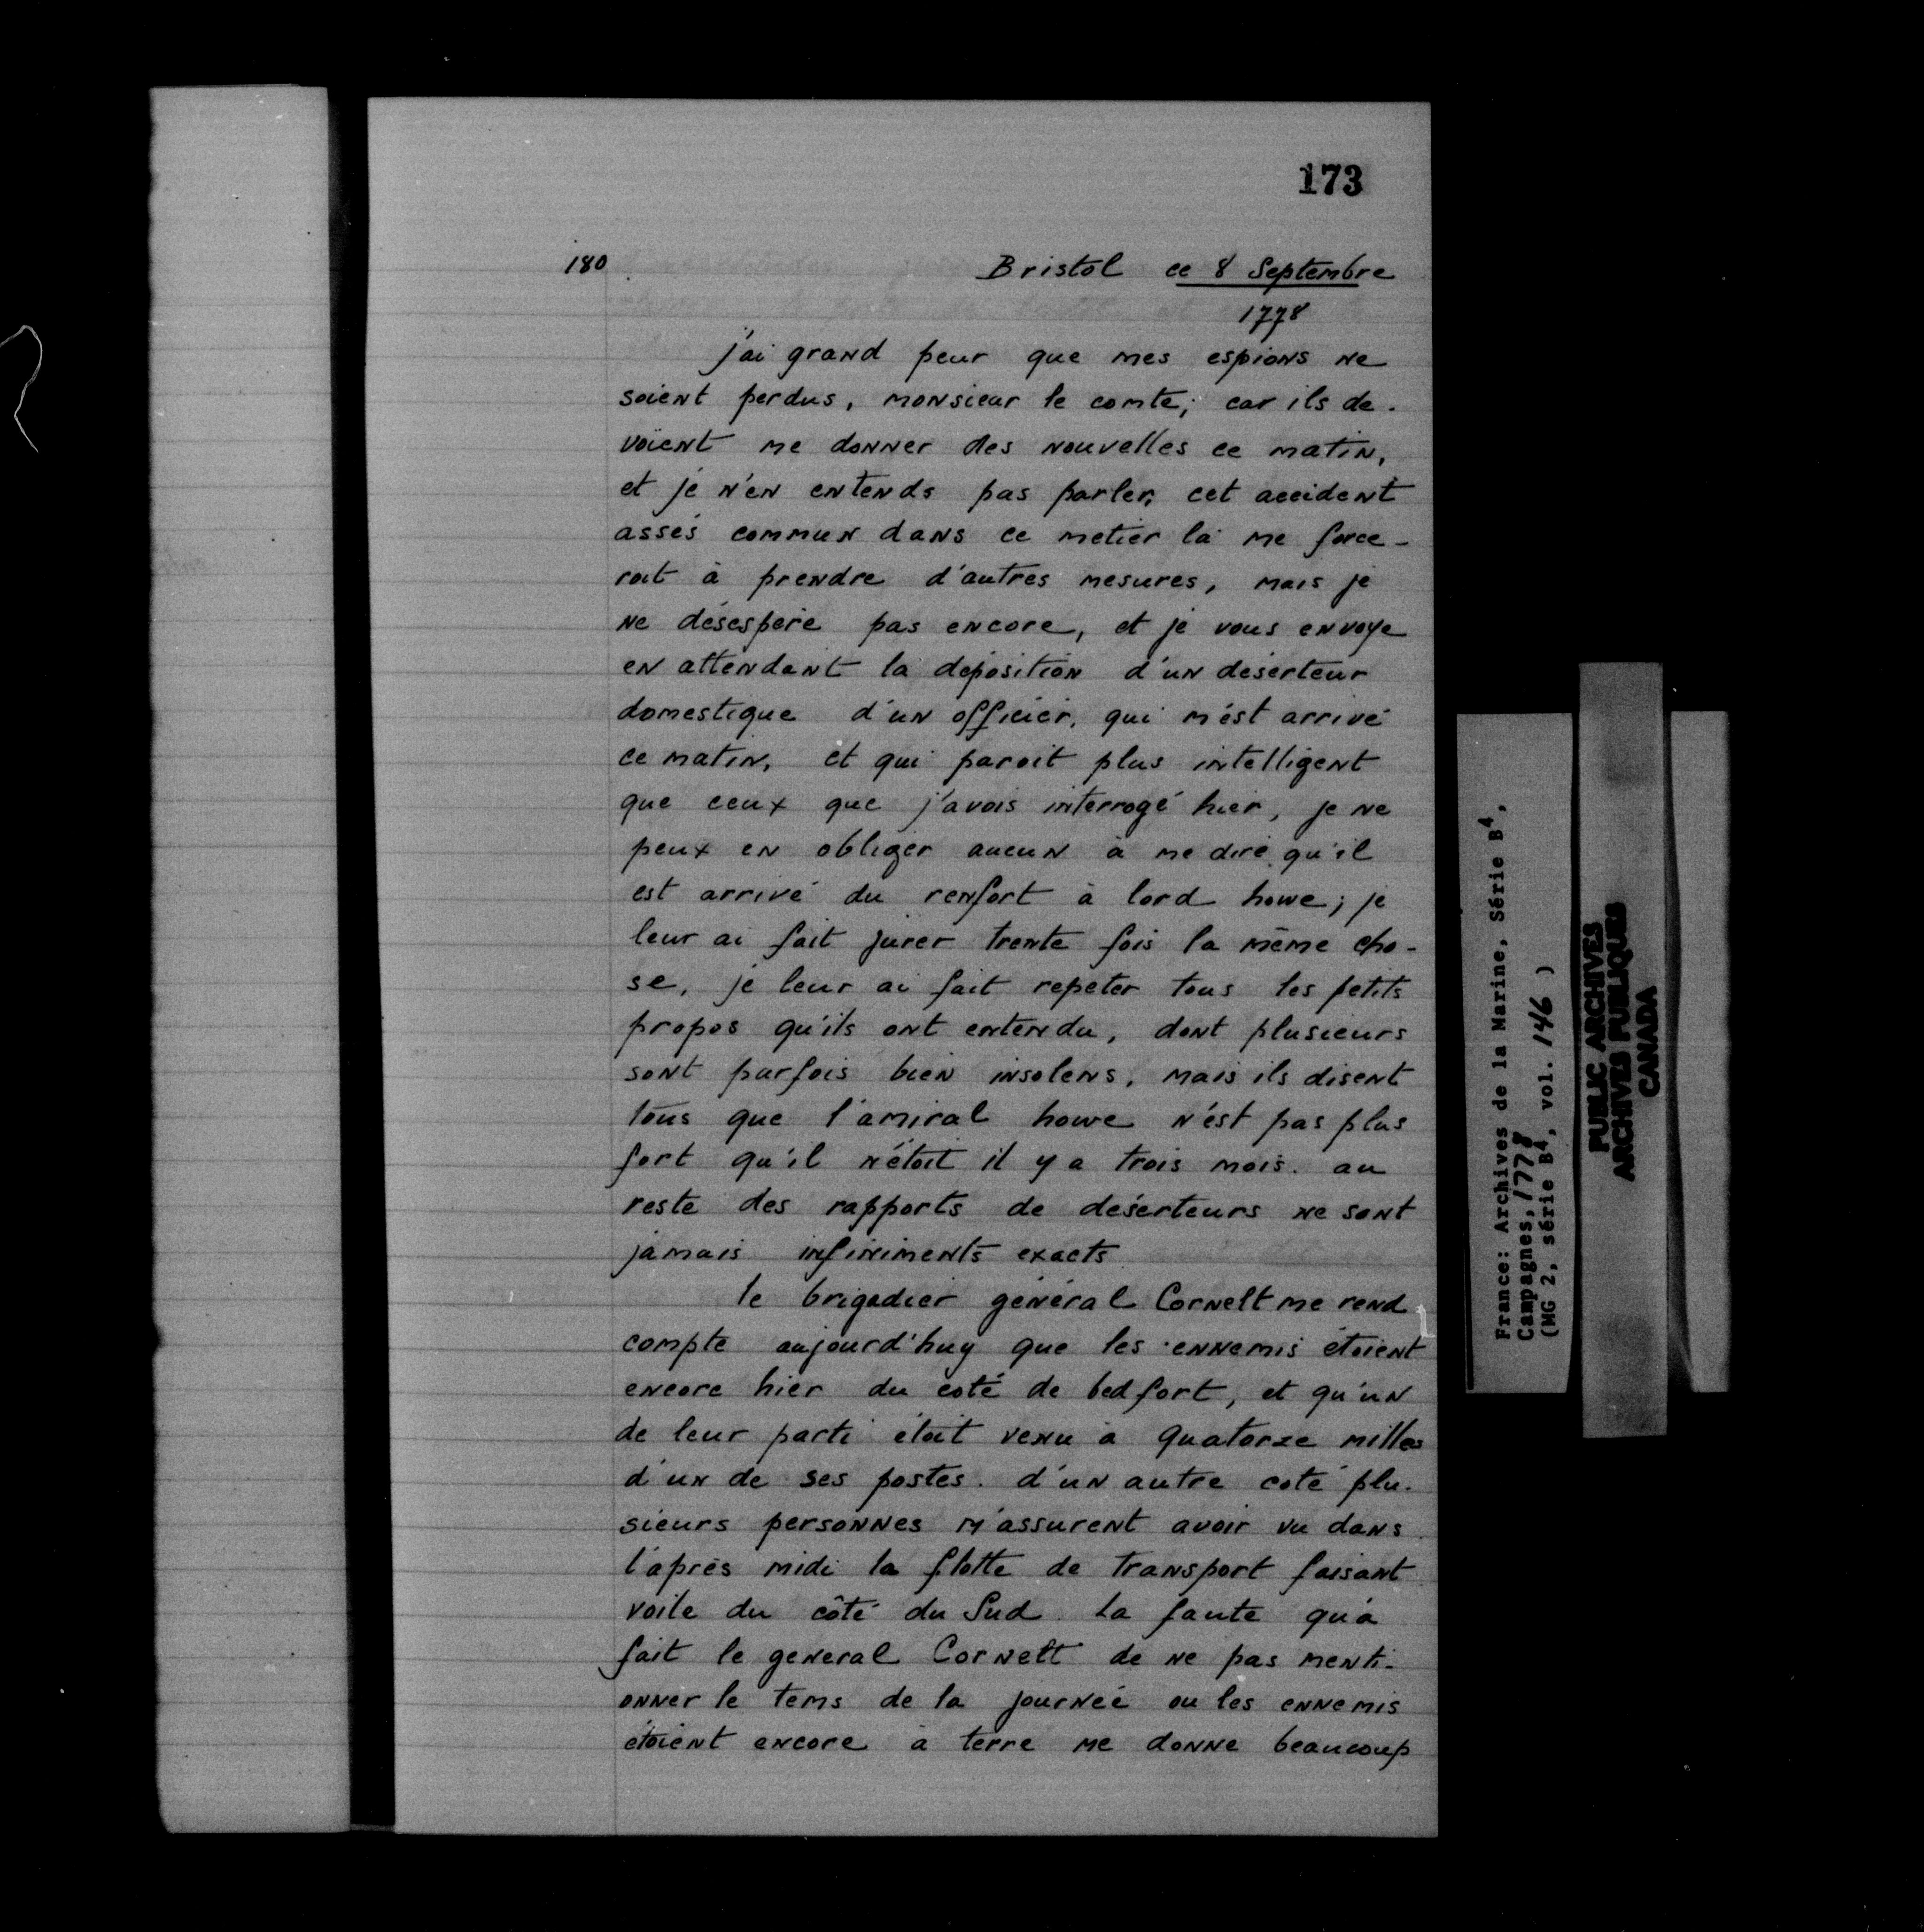 173
180
Bristol ce 8 Septembre
1778
j'ai grand peur que mes espions ne
soient perdus, monsieur le comte, car ils de-
voient me donner des nouvelles ce matin,
et je n'en entends pas parler, cet accident
assés commun dans ce metier là me force-
roit à prendre d'autres mesures, mais je
ne désespère pas encore, et je vous envoye
en attendant la déposition d'un déserteur
domestique d'un officier, qui m'est arrivé
ce matin, et qui paroit plus intelligent
que ceux que j'avois interrogé hier, je ne
peux en obliger aucun à me dire qu'il
est arrivé du renfort à lord howe; je
leur ai fait jurer trente fois la même cho-
se, je leur ai fait repeter tous les petits
propos qu'ils ont entendu, dont plusieurs
sont parfois bien insolens, mais ils disent
tous que l'amiral howe n'est pas plus
fort qu'il n'étoit il y a trois mois. au
reste des rapports de déserteurs ne sont
jamais infiniments exacts
le brigadier général Cornelt me rend
compte aujourd'huy que les ennemis étoient
encore hier du coté de bedfort, et qu'un
de leur parti étoit venu à quatorze milles
d'un de ses postes. d'un autre coté plu-
sieurs personnes m'assurent avoir vu dans
l'après midi la flotte de transport faisant
voile du côté du Sud. La faute qu'a
fait le general Cornelt de ne pas menti-
onner le tems de la journée ou les ennemis
étoient encore à terre me donne beaucoup
France: Archives de la Marine, Série B4,
Campagnes, 1778
(MG 2, série B4, vol. 146 )
PUBLIC ARCHIVES
ARCHIVES PUBLIQUES
CANADA